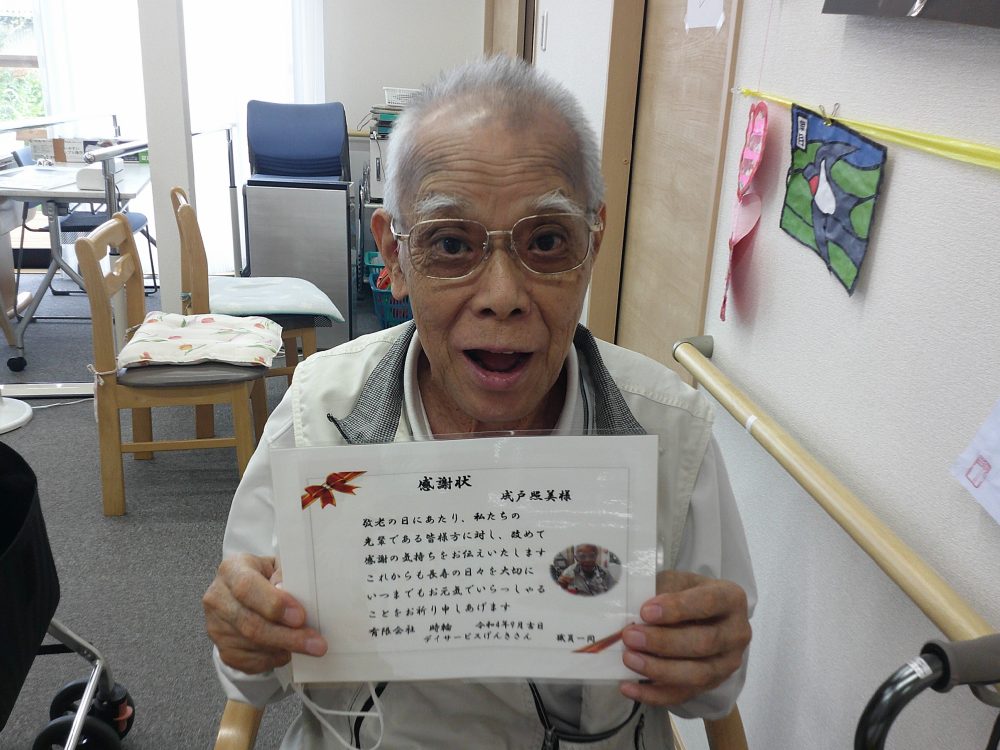 感謝状
成戸照美様
敬老の日にあたり、私たちの
先輩である皆様方に対し、改めて
感謝の気持ちをお伝えいたします
これからも長寿の日々を大切に
いつまでもお元気でいらっしゃる
ことをお祈り申しあげます
有限会社　時輪　令和4年9月吉日
デイサービスげんきさん　職員一同